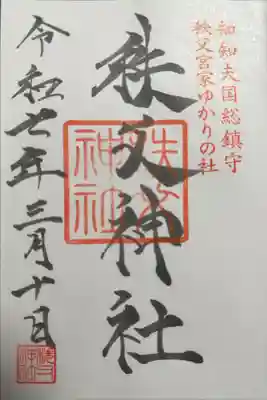 知知夫国総鎮守
秩父宮家ゆかりの社
秩父神社
秩父
神社
令和七年三月十日